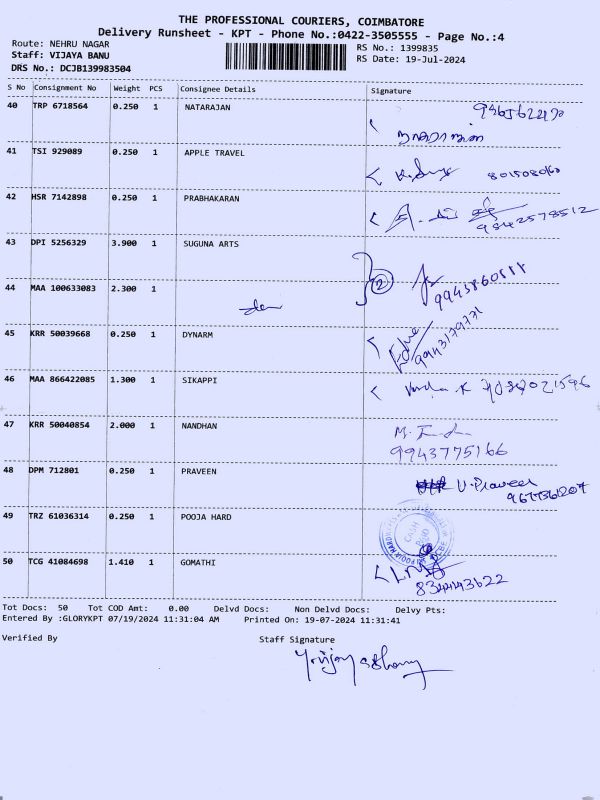 THE PROFESSIONAL COURIERS, COIMBATORE
Delivery Runsheet - KPT - Phone No.:0422-3505555 - Page No.:4
Route: NEHRU NAGAR RS No.: 1399835
Staff: VIJAYA BANU RS Date: 19-Jul-2024
DRS No.: DCJB139983504
S No Consignment No Weight PCS Consignee Details Signature
40 TRP 6718564 0.250 1 NATARAJAN
41 TSI 929089 0.250 1 APPLE TRAVEL
42 HSR 7142898 0.250 1 PRABHAKARAN
9842578512
43 DPI 5256329 3.900 1 SUGUNA ARTS
2
44 MAA 100633083 2.300 1
45 KRR 50039668 0.250 1 DYNARM
9943179731
46 MAA 866422085 1.300 1 SIKAPPI
47 KRR 50040854 2.000 1 NANDHAN
9943775166
48 DPM 712801 0.250 1 PRAVEEN
V. Praveen
49 TRZ 61036314 0.250 1 POOJA HARD
50 TCG 41084698 1.410 1 GOMATHI
8344443622
Tot Docs: 50 Tot COD Amt: 0.00 Delvd Docs: Non Delvd Docs: Delvy Pts:
Entered By :GLORYKPT 07/19/2024 11:31:04 AM Printed On: 19-07-2024 11:31:41
Verified By Staff Signature